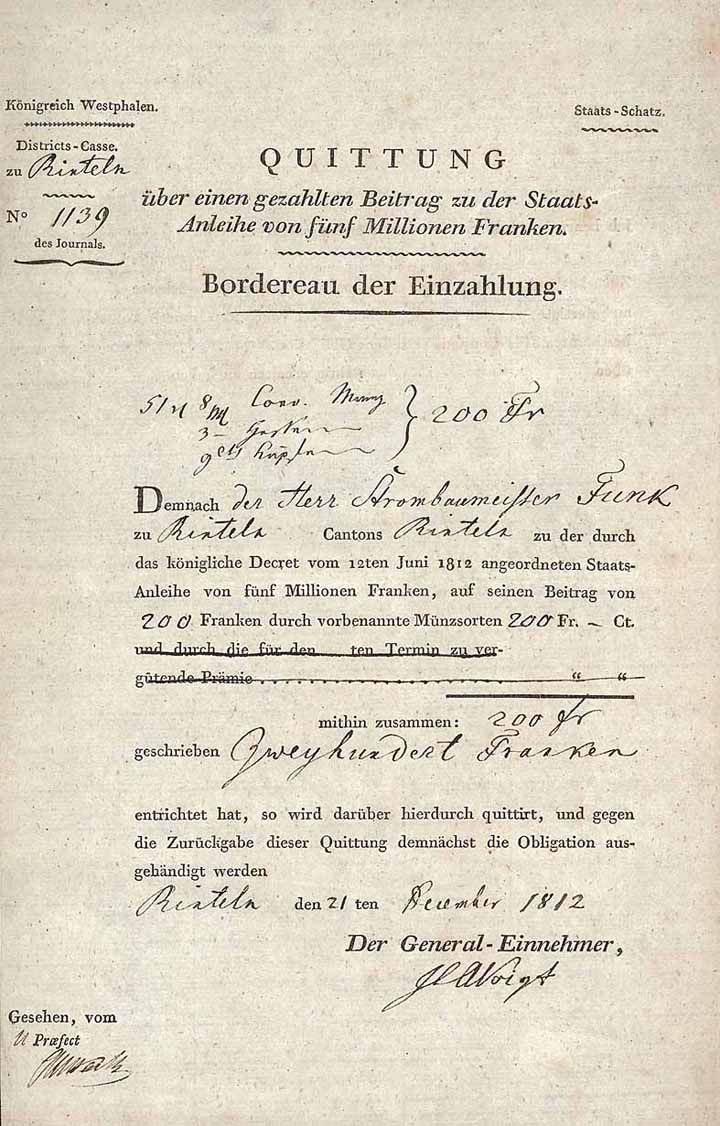 Königreich Westphalen.
Staats-Schatz.
Districts-Casse.
zu Rinteln
N° 1139
des Journals.
QUITTUNG
über einen gezahlten Beitrag zu der Staats-
Anleihe von fünf Millionen Franken.
Bordereau der Einzahlung.
51 8 Conv. Münz
3
9
200 Fr
Demnach der Herr Strombaumeister Funk
zu Rinteln Cantons Rinteln zu der durch
das königliche Decret vom 12ten Juni 1812 angeordneten Staats-
Anleihe von fünf Millionen Franken, auf seinen Beitrag von
200 Franken durch vorbenannte Münzsorten 200 Fr. – Ct.
und durch die für den ten Termin zu ver-
gütende Prämie . . . . . . . . . . . . . . . . . . . . . . . . “ “
mithin zusammen: 200 fr
geschrieben Zweyhundert Franken
entrichtet hat, so wird darüber hierdurch quittirt, und gegen
die Zurückgabe dieser Quittung demnächst die Obligation aus-
gehändigt werden
Rinteln den 21 ten December 1812
Der General-Einnehmer,
Voigt
Gesehen, vom
U Præfect